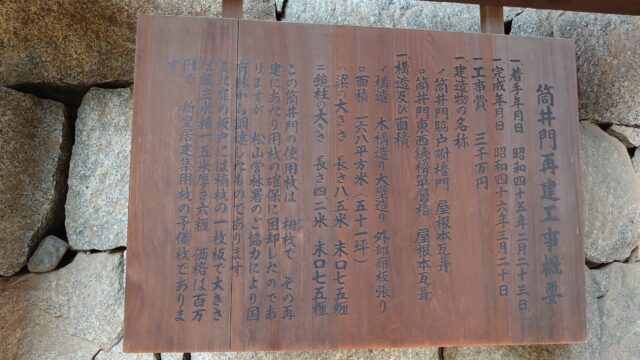 筒井門再建工事概要
一着手年月日 昭和四十五年二月二十三日
一完成年月日 昭和四十六年三月二十日
一工事費 三千万円
一建造物の名称
イ筒井門脇戸附櫓門 屋根本瓦葺
ロ筒井門東西続櫓単層櫓 屋根本瓦葺
一構造及び面積
イ構造 木構造り大壁造り 外部諸板張り
ロ面積 一六八平方米(五十一坪)
ハ梁の大きさ 長さ八五米 末口七五糎
ニ鏡柱の大きさ 長さ四二米 末口七五糎
この筒井門の使用材は 栂材で その再
建にあたり用材の確保に困却したのであ
りますが 松山営林署のご協力により国
有林から調達したものであります
また扉の板戸には楠材の一枚板で大きさ
は 厚さ六糎 価格は百万
円で 新皇居建築用材の予備材でありま
す